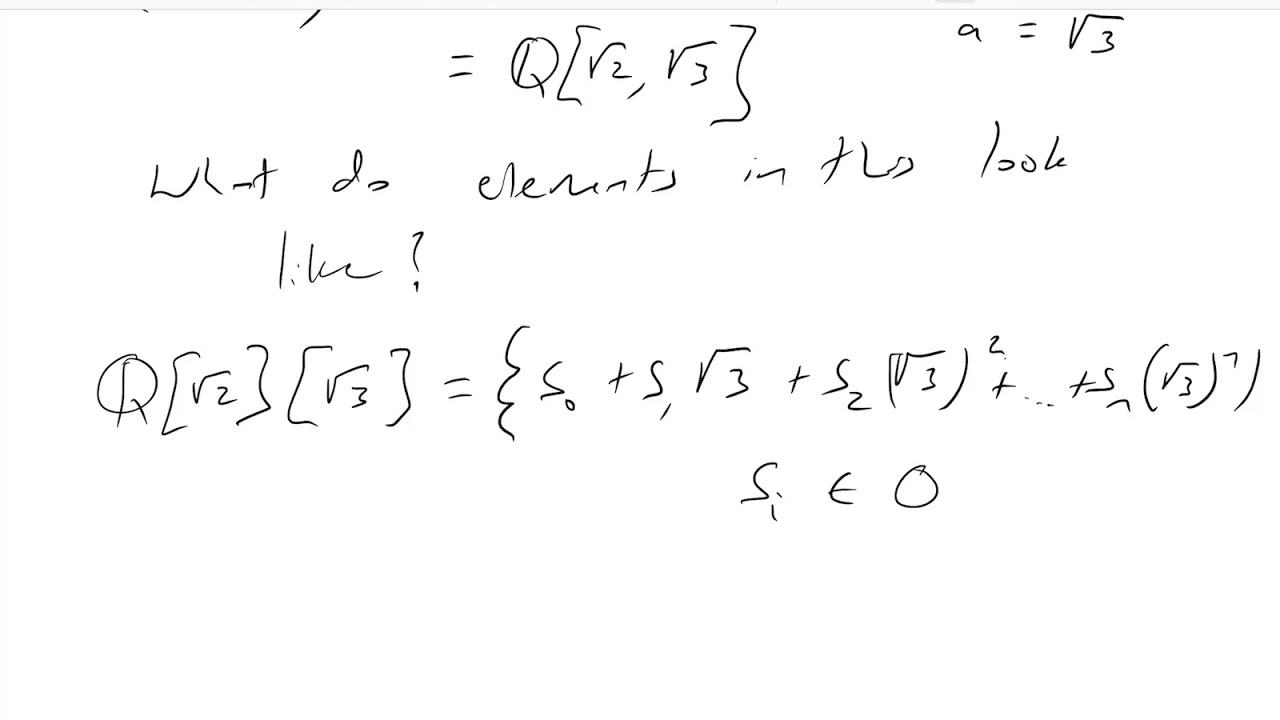 = ℚ[√2, √3]
a = √3
What do elements in this look
like?
ℚ[√2][√3] = {s₀ + s₁√3 + s₂(√3)² + ... + sₙ(√3)ⁿ
sᵢ ∈ O